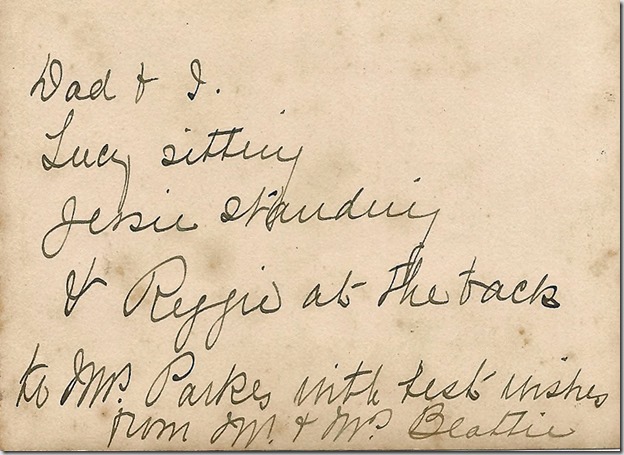 Dad & I.
Lucy sitting
Jessie standing
& Reggie at the back
to Mrs. Parkes with best wishes
from Mr. & Mrs. Beattie